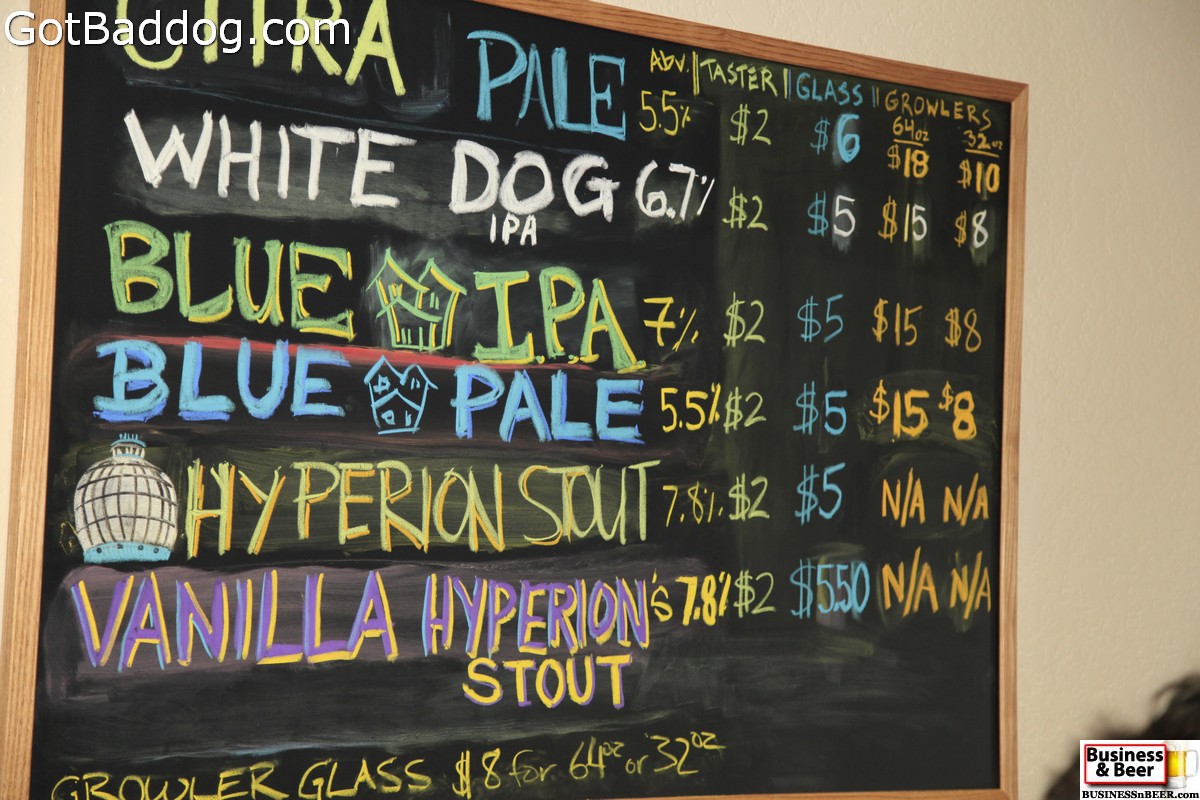 GotBaddog.com
CITRA PALE 5.5% $2 $6 $18 $10
ABV. TASTER GLASS GROWLERS
64oz 32oz
WHITE DOG 6.7% $2 $5 $15 $8
IPA
BLUE I.P.A. 7% $2 $5 $15 $8
BLUE PALE 5.5% $2 $5 $15 $8
HYPERION STOUT 7.8% $2 $5 N/A N/A
VANILLA HYPERION'S 7.8% $2 $5.50 N/A N/A
STOUT
GROWLER GLASS $8 for 64oz or 32oz
Business
& Beer
BUSINESSnBEER.com